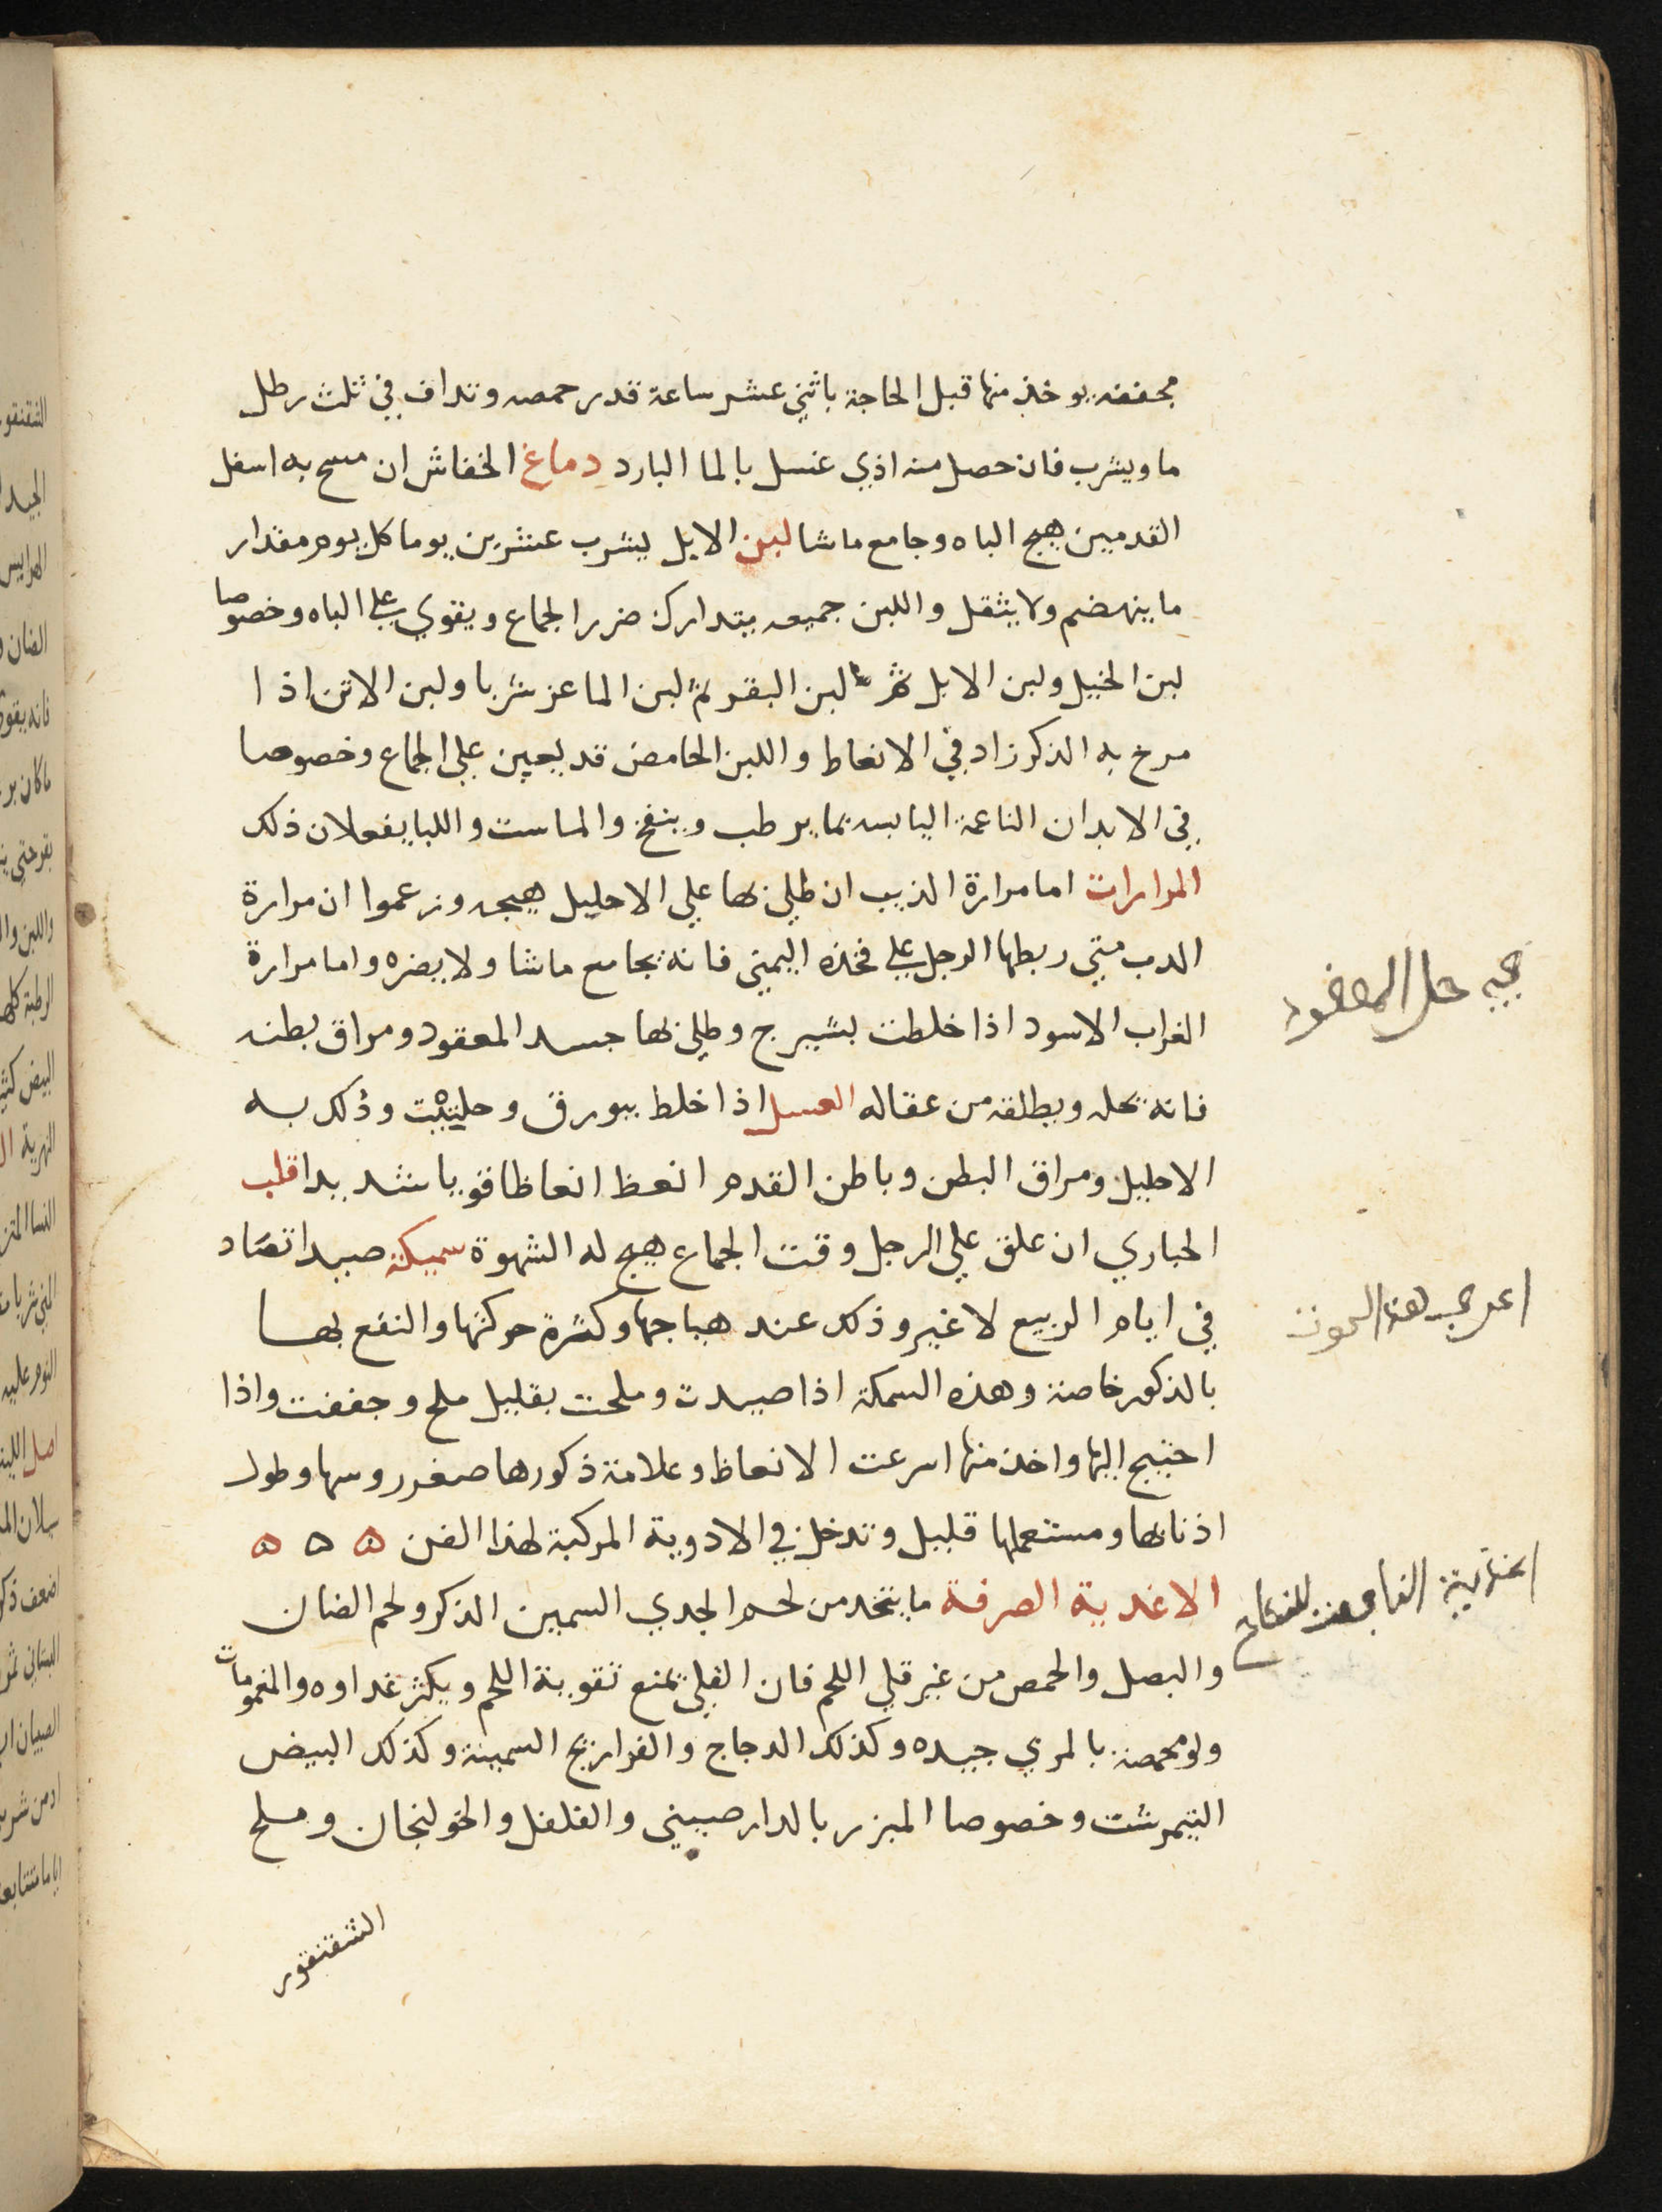 مجففه يوخذ منها قبل الحاجة باثني عشر ساعة قدر حمصه وتداف في ثلث رطل
ما ويشرب فان حصل منه اذي غسل بالما البارد دماغ الخفاش ان مسح به اسفل
القدمين هيج الباه وجامع ماشا لبن الابل يشرب عشرين يوما كل يوم مقدار
ما ينهضم ولا يثقل واللبن جميعه يتدارك ضرر الجماع ويقوي علي الباه وخصوصا
لبن الخيل ولبن الابل ثم لبن البقر ثم لبن الماعز شربا ولبن الاتن اذا
مرخ به الذكر زاد في الانعاظ واللبن الحامض قد يعين علي الجماع وخصوصا
في الابدان الناعمة اليابسه بما يرطب وينفخ والماست واللبا يفعلان ذلك
المرارات اما مرارة الذيب ان طلي بها علي الاحليل هيجه وزعموا ان مرارة
الدب متي ربطها الرجل علي فخذه اليمني فانه يجامع ماشا ولا يضره واما مرارة
الغراب الاسود اذا خلطت بشيرج وطلي بها جسد المعقود ومراق بطنه
فانه يحله ويطلقه من عقاله العسل اذا خلط ببورق وحلتيت ودلك به
الاحليل ومراق البطن وباطن القدم انعظ انعاظا قويا شديدا قلب
الحباري ان علق علي الرجل وقت الجماع هيج له الشهوة سميكة صيدا تصاد
في ايام الربيع لا غير وذلك عند هياجها وكثرة حركتها والنفع بها
بالذكور خاصة وهذه السمكة اذا صيدت وملحت بقليل ملح وجففت واذا
احتيج اليها واخذ منها اسرعت الانعاظ وعلامة ذكورها صغر روسها وطول
اذنابها ومستعملها قليل وتدخل في الادوية المركبة لهذا الفن ه ه ه
الاغدية الصرفة ما يتخد من لحم الجدي السمين الذكر ولحم الضان
والبصل والحمص من غير قلي اللحم فان القلي يمنع تقوية اللحم ويكثر غداوه والمغمومات
ولو محمصة بالمري جيده وكذلك الدجاج والفراريج السمينة وكذلك البيض
النيمرشت وخصوصا المبزر بالدارصيني والفلفل والخولنجان وملح
الشقنقور
حل المعقود